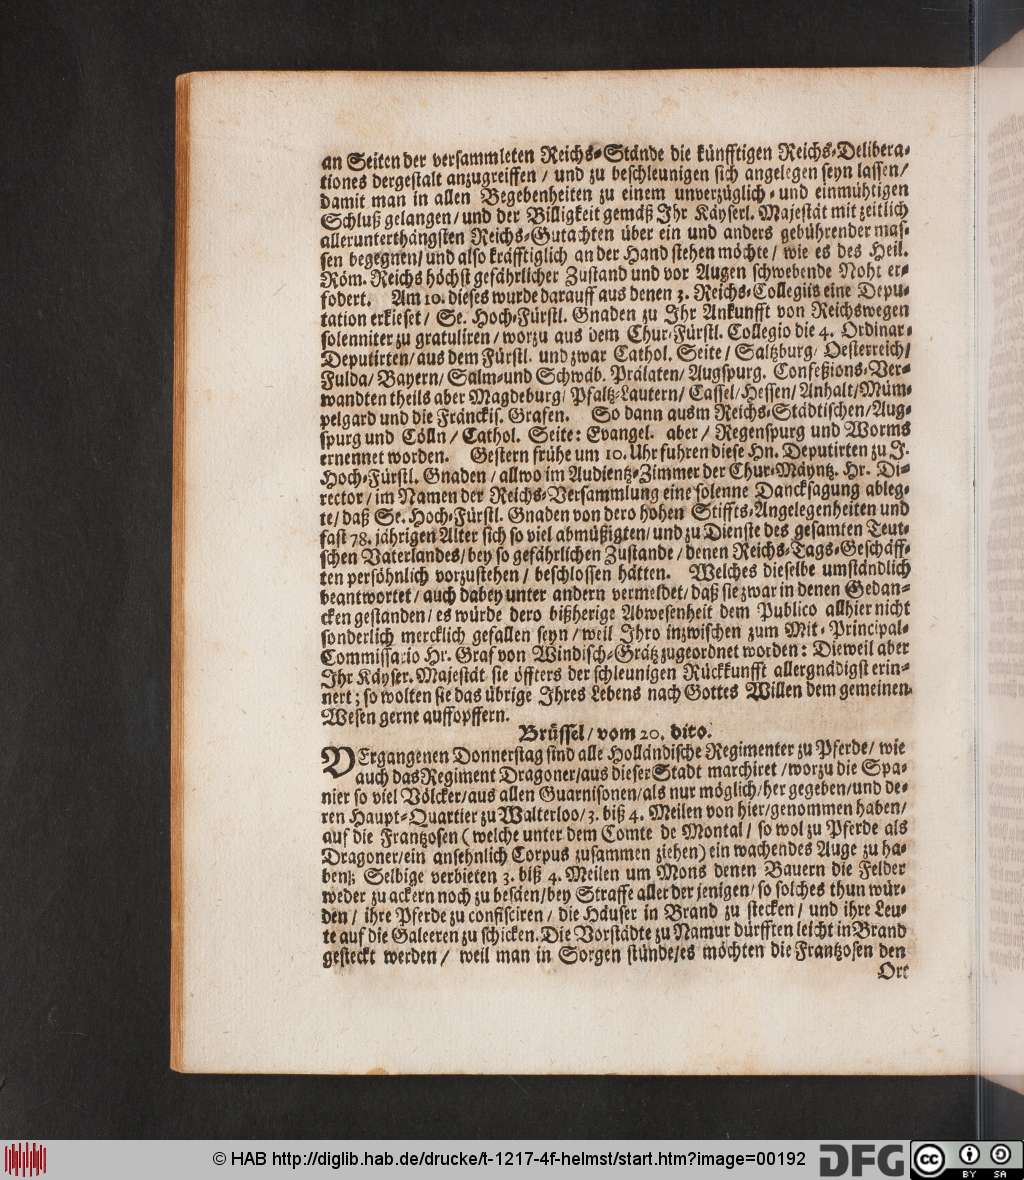 an Seiten der versammleten Reichs-Stände die künfftigen Reichs-Delibera-
tiones dergestalt anzugreiffen / und zu beschleunigen sich angelegen seyn lassen/
damit man in allen Begebenheiten zu einem unverzüglich- und einmühtigen
Schluß gelangen/ und der Billigkeit gemäß Ihr Käyserl. Majestät mit zeitlich
allerunterthängsten Reichs-Gutachten über ein und anders gebührender mas-
sen begegnen/ und also kräfftiglich an der Hand stehen möchte/ wie es des Heil.
Röm. Reichs höchst gefährlicher Zustand und vor Augen schwebende Noht er-
fodert. Am 10. dieses wurde darauff aus denen 3. Reichs-Collegiis eine Depu-
tation erkieset/ Se. Hoch-Fürstl. Gnaden zu Ihr Ankunfft von Reichswegen
solenniter zu gratuliren/ worzu aus dem Chur-Fürstl. Collegio die 4. Ordinar-
Deputirten/ aus dem Fürstl. und zwar Cathol. Seite/ Saltzburg/ Oesterreich/
Fulda/ Bayern/ Salm-und Schwäb. Prälaten/ Augspurg. Confeßions-Ver-
wandten theils aber Magdeburg/ Pfaltz-Lautern/ Cassel/ Hessen/ Anhalt/ Müm-
pelgard und die Fränckis. Grafen. So dann ausm Reichs-Städtischen/ Aug-
spurg und Cölln / Cathol. Seite: Evangel. aber/ Regenspurg und Worms
ernennet worden. Gestern frühe um 10. Uhr fuhren diese Hn. Deputirten zu J.
Hoch-Fürstl. Gnaden / allwo im Audientz-Zimmer der Chur-Mäyntz. Hr. Di-
rector / im Namen der Reichs-Versammlung eine solenne Dancksagung ableg-
te/ daß Se. Hoch-Fürstl. Gnaden von dero hohen Stiffts-Angelegenheiten und
fast 78. jährigen Alter sich so viel abmüßigten/ und zu Dienste des gesamten Teut-
schen Vaterlandes/ bey so gefährlichen Zustande / denen Reichs-Tags-Geschäff-
ten persöhnlich vorzustehen / beschlossen hätten. Welches dieselbe umständlich
beantwortet / auch dabey unter andern vermeldet/ daß sie zwar in denen Gedan-
cken gestanden/ es würde dero bißherige Abwesenheit dem Publico allhier nicht
sonderlich mercklich gefallen seyn / weil Ihro inzwischen zum Mit-Principal-
Commissario Hr. Graf von Windisch-Grätz zugeordnet worden: Dieweil aber
Ihr Käyser. Majestät sie öffters der schleunigen Rückkunfft allergnädigst erin-
nert; so wolten sie das übrige Ihres Lebens nach Gottes Willen dem gemeinen
Wesen gerne auffopffern.
Brüssel / vom 20. dito.
VErgangenen Donnerstag sind alle Holländische Regimenter zu Pferde/ wie
auch das Regiment Dragoner/aus dieser Stadt marchiret / worzu die Spa-
nier so viel Völcker/aus allen Guarnisonen/als nur möglich/her gegeben/und de-
ren Haupt-Quartier zu Walterloo/ 3. biß 4. Meilen von hier/genommen haben/
auf die Frantzosen ( welche unter dem Comte de Montal / so wol zu Pferde als
Dragoner/ein ansehnlich Corpus zusammen ziehen) ein wachendes Auge zu ha-
ben; Selbige verbieten 3. biß 4. Meilen um Mons denen Bauern die Felder
weder zu ackern noch zu besäen/bey Straffe aller der jenigen/ so solches thun wür-
den / ihre Pferde zu confisciren / die Häuser in Brand zu stecken / und ihre Leu-
te auf die Galeeren zu schicken. Die Vorstädte zu Namur dürfften leicht in Brand
gesteckt werden / weil man in Sorgen stünde/es möchten die Frantzosen den
Ort
© HAB http://diglib.hab.de/drucke/t-1217-4f-helmst/start.htm?image=00192
DFG
cc
BY SA